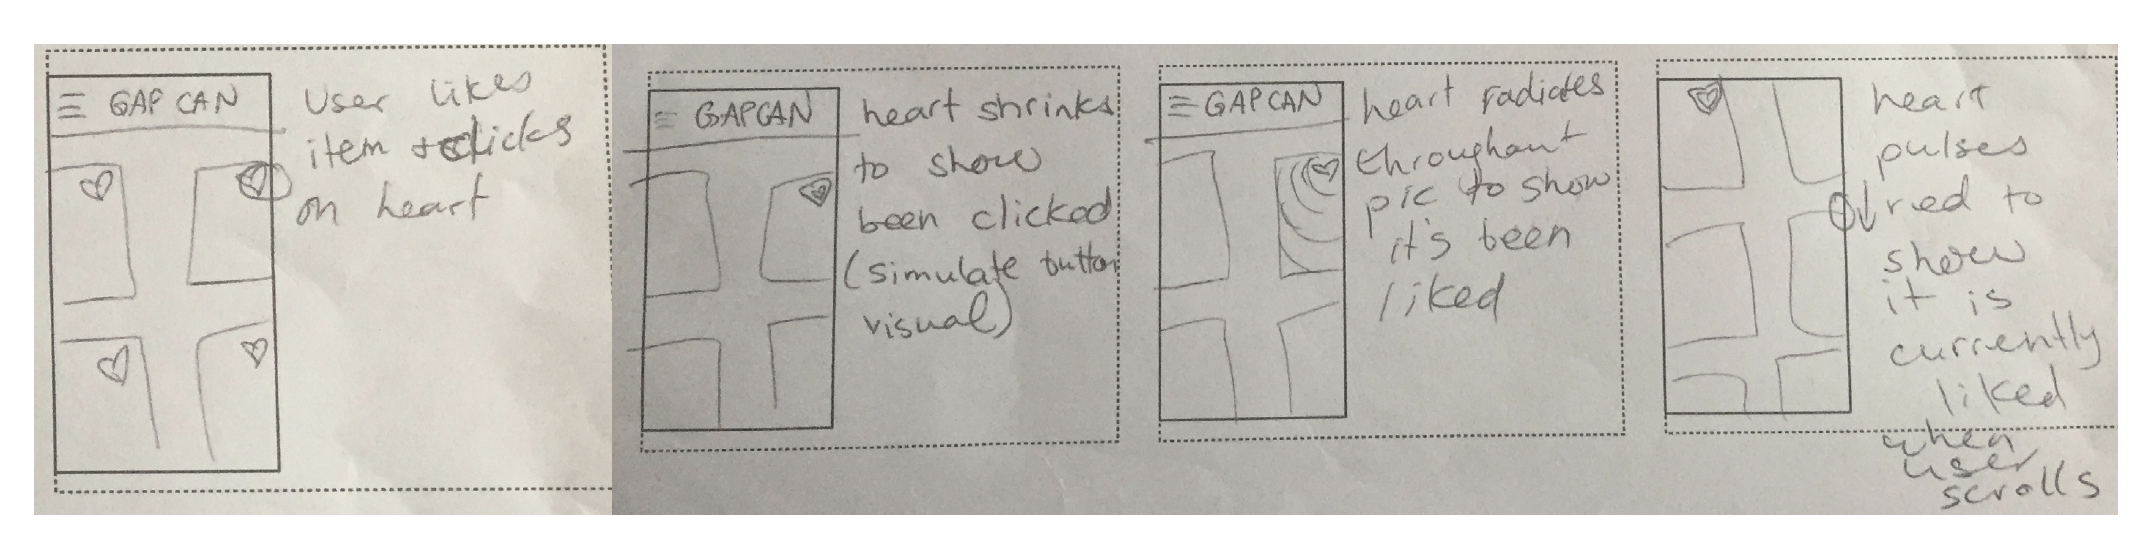 GAP CAN
User likes
item + clicks
on heart
GAPCAN
heart shrinks
to show
been clicked
(simulate button
visual)
GAPCAN
heart radiates
throughout
pic to show
it's been
liked
heart
pulses
red to
show
it is
currently
liked
when
user
scrolls